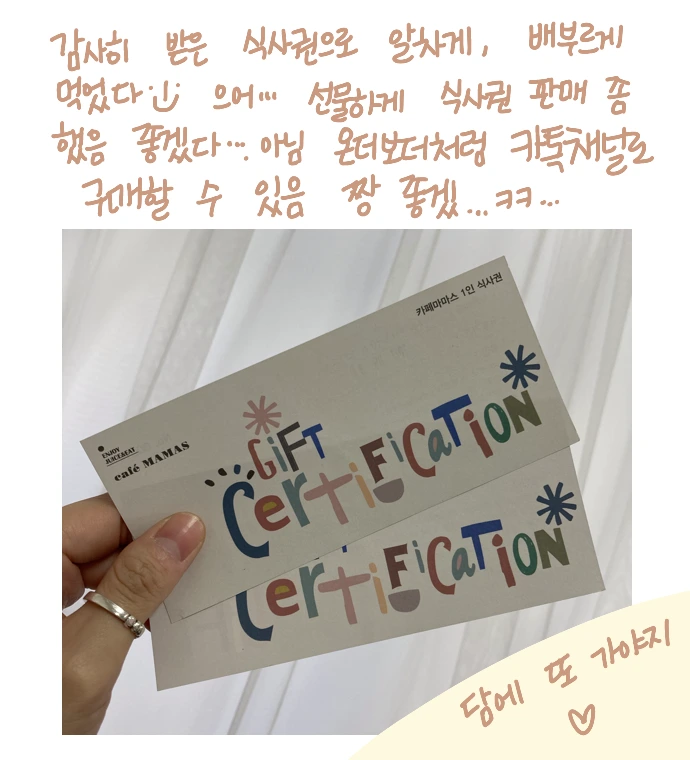 감사히 받은 식사권으로 알차게, 배부르게
먹었다 으어... 선물하게 식사권 판매 좀
했음 좋겠다... 아님 온더보더처럼 카톡채널로
구매할 수 있음 짱 좋겠...ㅋㅋ...
카페마마스 1인 식사권
ENJOY
JUICE&EAT
café MAMAS
GiFT
CertiFiCaTiON
CertiFiCaTiON
담에 또 가야지